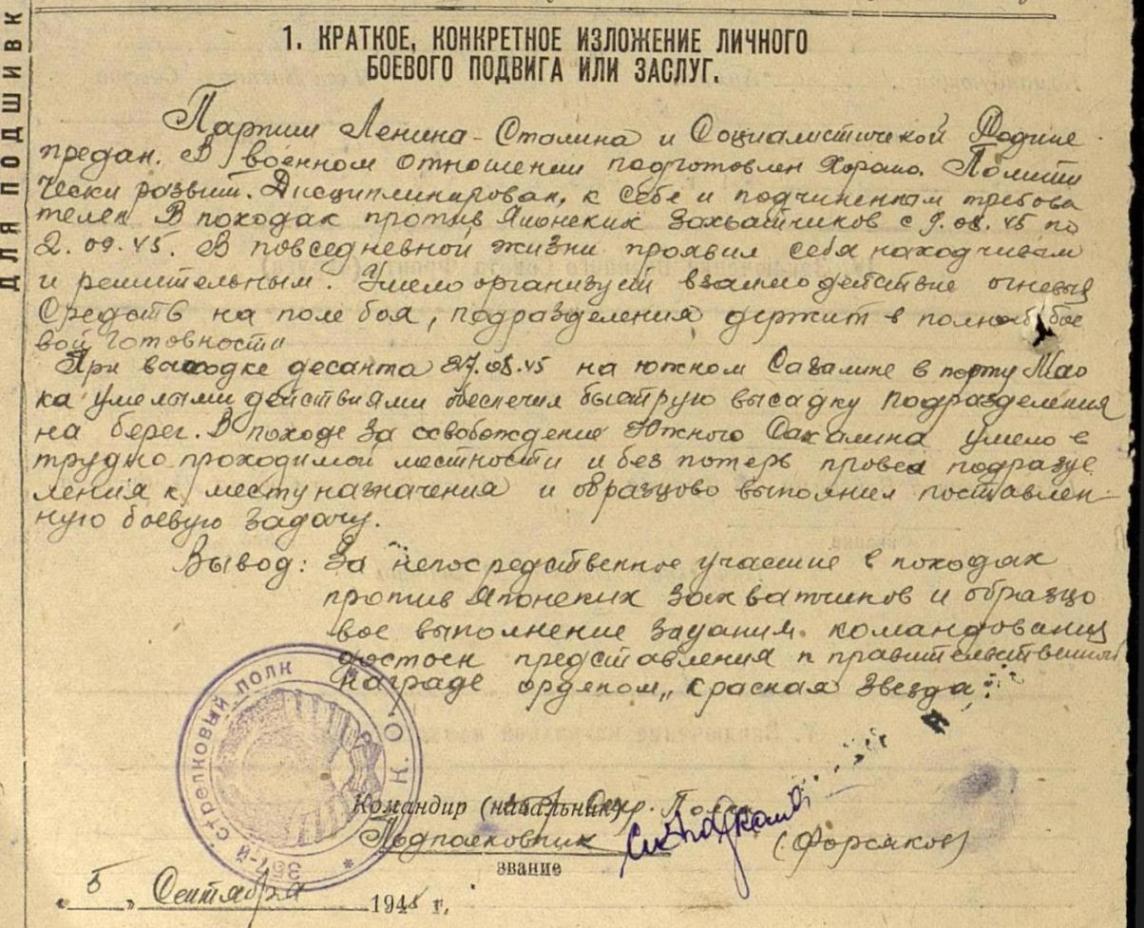 ДЛЯ ПОДШИВК
1. КРАТКОЕ, КОНКРЕТНОЕ ИЗЛОЖЕНИЕ ЛИЧНОГО
БОЕВОГО ПОДВИГА ИЛИ ЗАСЛУГ.
Партии Ленина-Сталина и Социалистической Родине
предан. В военном отношении подготовлен хорошо. Полити
чески развит. Дисциплинирован, к себе и подчиненным требова
телен. В походах против Японских захватчиков с 9.08.45 по
2.09.45. В повседневной жизни проявил себя находчивым
и решительным. Умело организует взаимодействие огневых
средств на поле боя, подразделения держит в полной бое
вой готовности
При высадке десанта 27.08.45 на южном Сахалине в порту Мао
ка умелыми действиями обеспечил быструю высадку подразделения
на берег. В походе за освобождение Южного Сахалина умело в
трудно проходимой местности и без потерь провел подразде
ления к месту назначения и образцово выполнил поставлен-
ную боевую задачу.
Вывод: За непосредственное участие в походах
против Японских захватчиков и образцо
вое выполнение задания командования
достоин представления к правительственной
награде орденом „Красная Звезда".
СТРЕЛКОВЫЙ ПОЛК
Командир (начальник)
Подполковник
звание
„5" Сентября 1945 г.